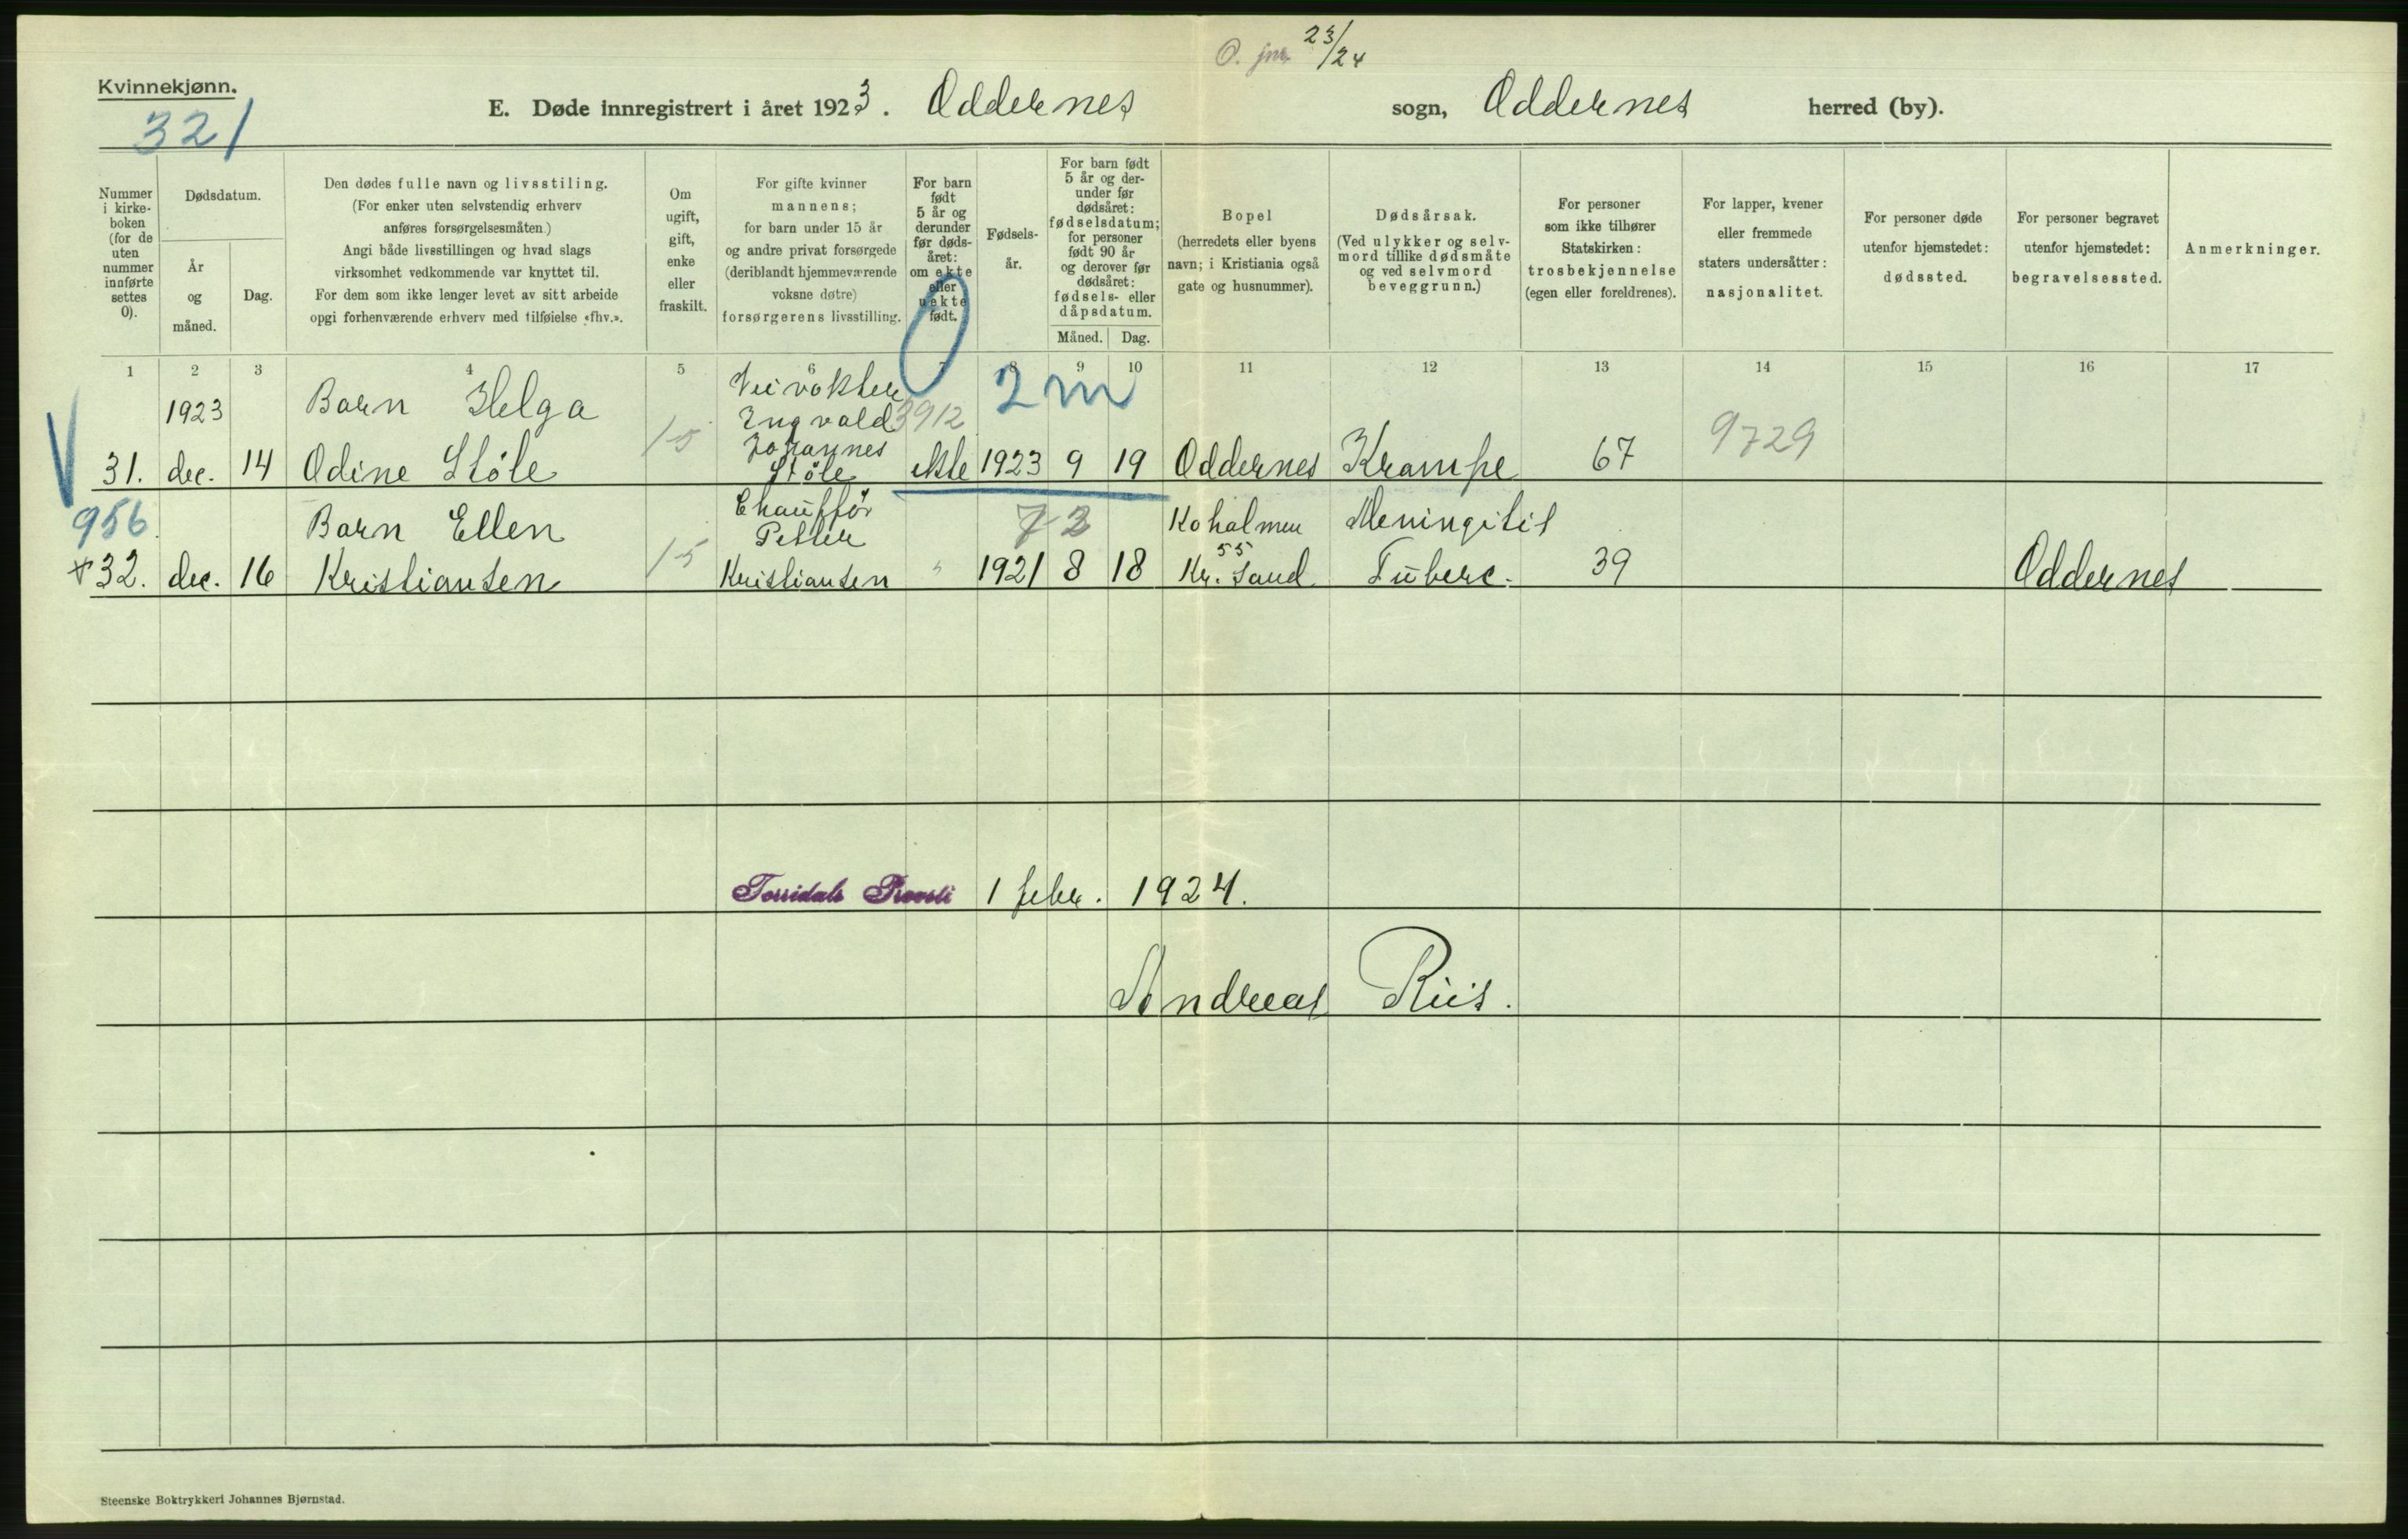 O. jnr. 23/24
Kvinnekjønn.
321
E. Døde innregistrert i året 1923. Oddernes sogn, Oddernes herred (by).
Nummer i kirke-boken (for de uten nummer innførte settes 0).
Dødsdatum.
År og måned.
Dag.
Den dødes fulle navn og livsstiling.
(For enker uten selvstendig erhverv
anføres forsørgelsesmåten.)
Angi både livsstillingen og hvad slags
virksomhet vedkommende var knyttet til.
For dem som ikke lenger levet av sitt arbeide
opgi forhenværende erhverv med tilføielse «fhv.».
Om ugift, gift, enke eller fraskilt.
For gifte kvinner
mannens;
for barn under 15 år
og andre privat forsørgede
(deriblandt hjemmeværende
voksne døtre)
forsørgerens livsstilling.
For barn født 5 år og derunder før døds-året: om ekte eller uekte født.
Fødsels-år.
For barn født 5 år og der-under før dødsåret: fødselsdatum; for personer født 90 år og derover før dødsåret: fødsels- eller dåpsdatum.
Måned. Dag.
Bopel
(herredets eller byens
navn; i Kristiania også
gate og husnummer).
Dødsårsak.
(Ved ulykker og selv-
mord tillike dødsmåte
og ved selvmord
beveggrunn.)
For personer
som ikke tilhører
Statskirken:
trosbekjennelse
(egen eller foreldrenes).
For lapper, kvener
eller fremmede
staters undersåtter:
nasjonalitet.
For personer døde
utenfor hjemstedet:
dødssted.
For personer begravet
utenfor hjemstedet:
begravelsessted.
Anmerkninger.
1 2 3 4 5 6 7 8 9 10 11 12 13 14 15 16 17
1923 Barn Helga Veivokter 2 m
Engvald 3912
15 Johannes 9729
31. dec. 14 Odine Støle Støle ekte 1923 9 19 Oddernes Krampe 67
956. Barn Ellen Chauffør Petter 72 Koholmen Meningitis
15 55
32. dec. 16 Kristiansen Kristiansen " 1921 8 18 Kr. sand Tuberc. 39 Oddernes
Torridals Provsti 1 febr. 1924.
Andreas Riis.
Steenske Boktrykkeri Johannes Bjørnstad.